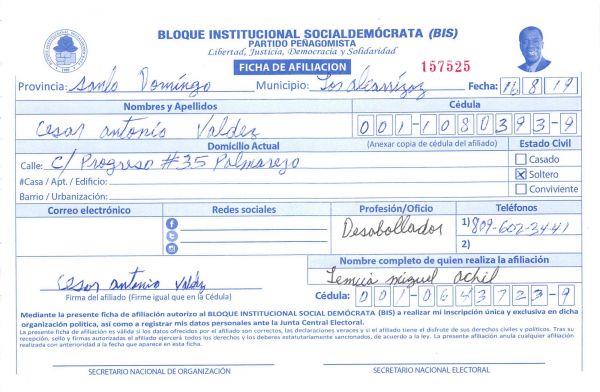 BLOQUE INSTITUCIONAL SOCIALDEMÓCRATA (BIS)
PARTIDO PEÑAGOMISTA
Libertad, Justicia, Democracia y Solidaridad
FICHA DE AFILIACION
157525
Provincia: Santo Domingo Municipio: Los alcarrizoz Fecha: 16 8 19
Nombres y Apellidos Cédula
Cesar antonio Valdez 001-1080393-9
Domicilio Actual (Anexar copia de cédula del afiliado) Estado Civil
Calle: C/ Progreso #35 Palmarejo
Casado
#Casa / Apt. / Edificio: Soltero
Barrio / Urbanización: Conviviente
Correo electrónico Redes sociales Profesión/Oficio Teléfonos
Desabollador 1) 809-602-3441
2)
Nombre completo de quien realiza la afiliación
Cesar antonio Valdez miguel
Firma del afiliado (Firme igual que en la Cédula) Cédula: 001-0643723-9
Mediante la presente ficha de afiliación autorizo al BLOQUE INSTITUCIONAL SOCIAL DEMÓCRATA (BIS) a realizar mi inscripción única y exclusiva en dicha
organización política, así como a registrar mis datos personales ante la Junta Central Electoral.
La presente ficha de afiliación es válida si los datos ofrecidos por el afiliado son correctos, las declaraciones veraces y si el afiliado tiene el disfrute de sus derechos civiles y políticos. Tras su
recepción, sello y firmas autorizadas el afiliado ejercerá todos los derechos y los deberes estatutariamente sancionados, de acuerdo a la ley. La presente afiliación anula cualquier afiliación
realizada con anterioridad a la fecha que aparece en esta ficha.
SECRETARIO NACIONAL DE ORGANIZACIÓN SECRETARIO NACIONAL ELECTORAL